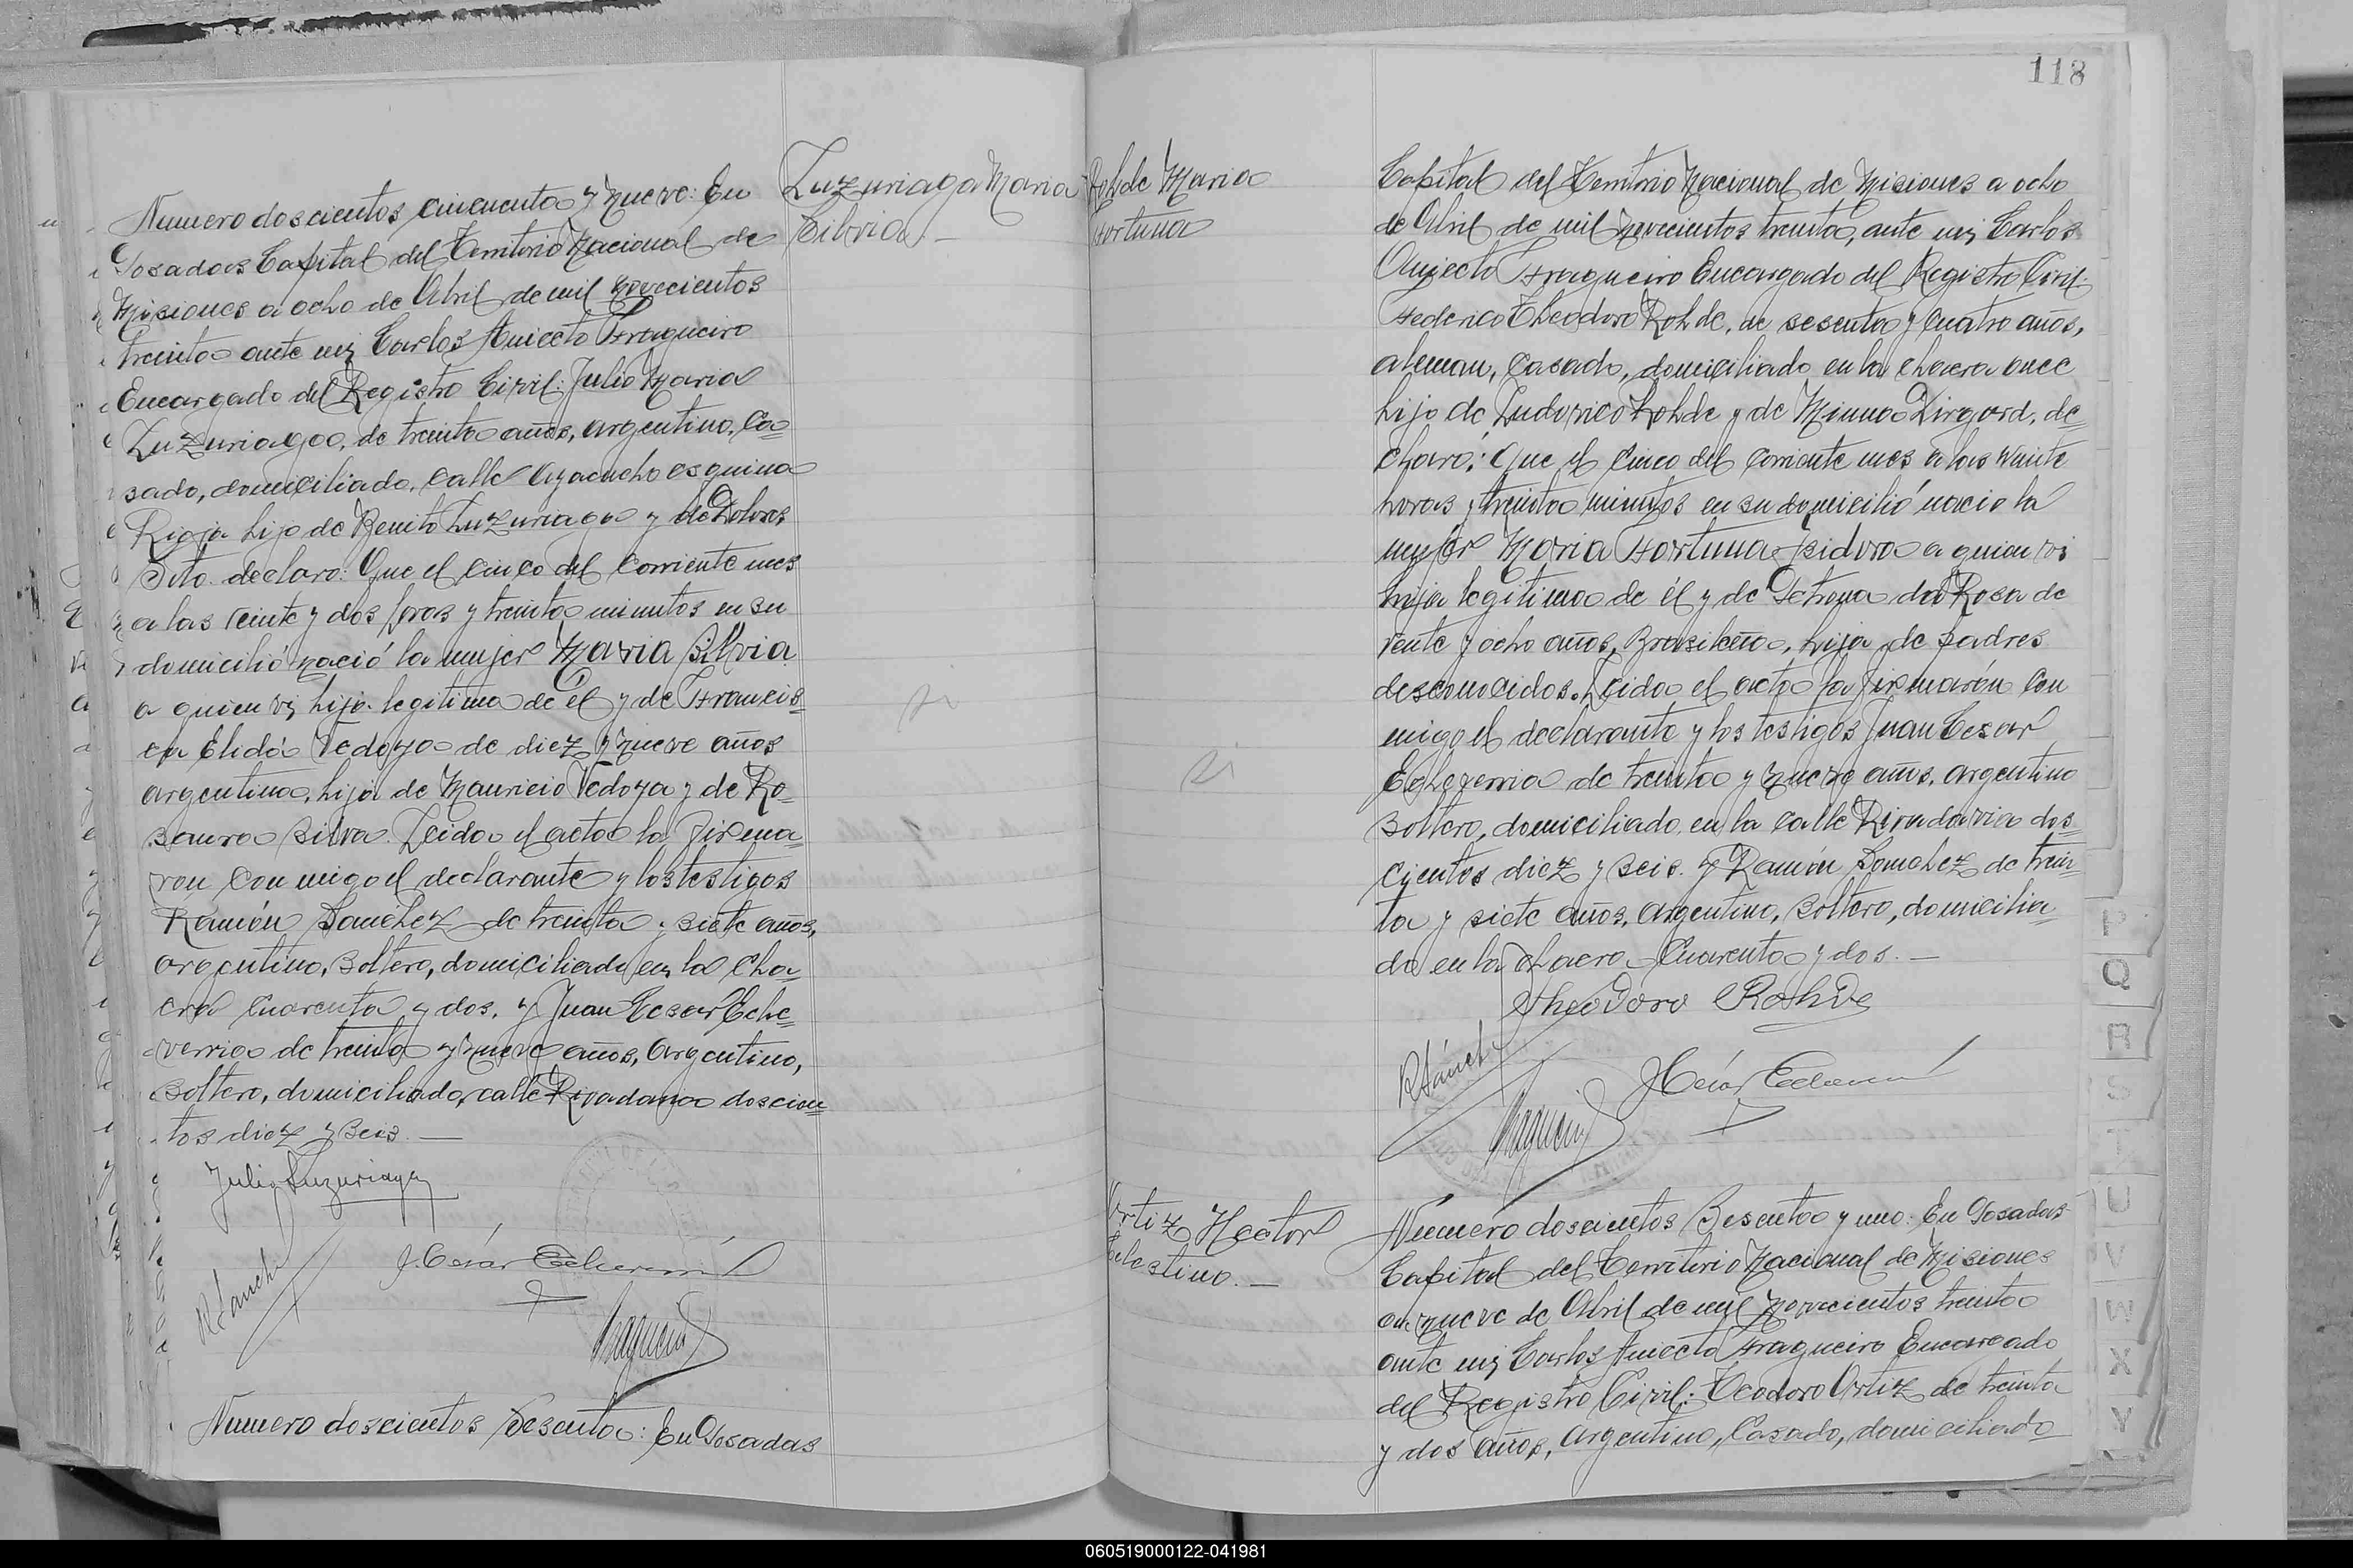 Numero doscientos cincuenta y nueve: En
Posadas Capital del Territorio Nacional de
Misiones a ocho de Abril de mil novecientos
treinta ante mi Carlos Aniceto Fragueiro
Encargado del Registro Civil: Julio Maria
Luzuriaga, de treinta años, argentino, Ca=
sado, domiciliado, calle Ayacucho esquina
Rioja hijo de Benito Luzuriaga y de Dolores
Soto. declaro: Que el cinco del corriente mes
a las veinte y dos horas y treinta minutos en su
domicilió nació la mujer Maria Silvia
a quien vi, hija legitima de él y de Francis=
ca Elida Vedoya de diez y nueve años
argentina, hija de Mauricio Vedoya y de Ro=
saura Silva. Leida el acta la firma=
ron conmigo el declarante y los testigos
Ramón Sanchez de treinta y siete años,
argentino, Soltero, domiciliado en la Cha=
cra Cuarenta y dos, y Juan Cesar Eche=
verria de treinta y nueve años, Argentino,
Soltero, domiciliado, calle Rivadavia doscien=
tos diez y seis. —
Julio Luzuriaga
R Sánchez
J. César Echeverría
Fragueiro
Numero doscientos Sesenta: En Posadas
Luzuriaga Maria
Silvia. —
si
118
Rohde Maria
Fortuna
si
Capital del Territorio Nacional de Misiones a ocho
de Abril de mil novecientos treinta, ante mi, Carlos
Aniceto Fragueiro Encargado del Registro Civil:
Federico Theodoro Rohde, de sesenta y cuatro años,
aleman, Casado, domiciliado en la chacra once
hijo de Ludovico Rohde y de Minna Dirgard, de=
claró: Que el cinco del corriente mes a las veinte
horas y treinta minutos en su domicilió nacio la
mujer Maria Fortuna Isidora a quien vi
hija legitima de él y de Petrona da Rosa de
veinte y ocho años, Brasileña, hija de padres
desconocidos. Leida el acta la firmarón con
migo el declarante y los testigos Juan Cesar
Echeverria de treinta y nueve años, argentino
Soltero, domiciliado en la calle Rivadavia dos=
cientos diez y seis. y Ramón Sanchez de trein=
ta y siete años, argentino, Soltero, domicilia
do en la chacra Cuarenta y dos. —
Theodoro Rohde
R Sánchez
J César Echeverría
Fragueiro
Ortiz Hector
Celestino. —
Numero doscientos Sesenta y uno: En Posadas
Capital del Territorio Nacional de Misiones
a nueve de Abril de mil novecientos treinta
ante mi, Carlos Aniceto Fragueiro Encargado
del Registro Civil: Teodoro Ortiz de treinta
y dos años, Argentino, Casado, domiciliado
P
Q
R
S
T
U
V
W
X
Y
060519000122-041981